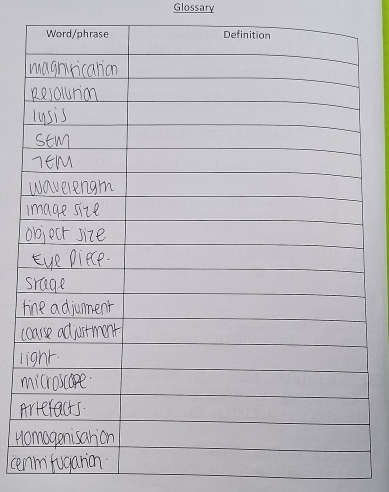 Glossary
Word/phrase Definition
magnification
Resolution
lysis
SEM
TEM
wavelength
image size
object size
Eye piece.
Stage
fine adjument
coarse adjustment
light.
microscope.
Artefacts.
Homogenisation
centrifugation.